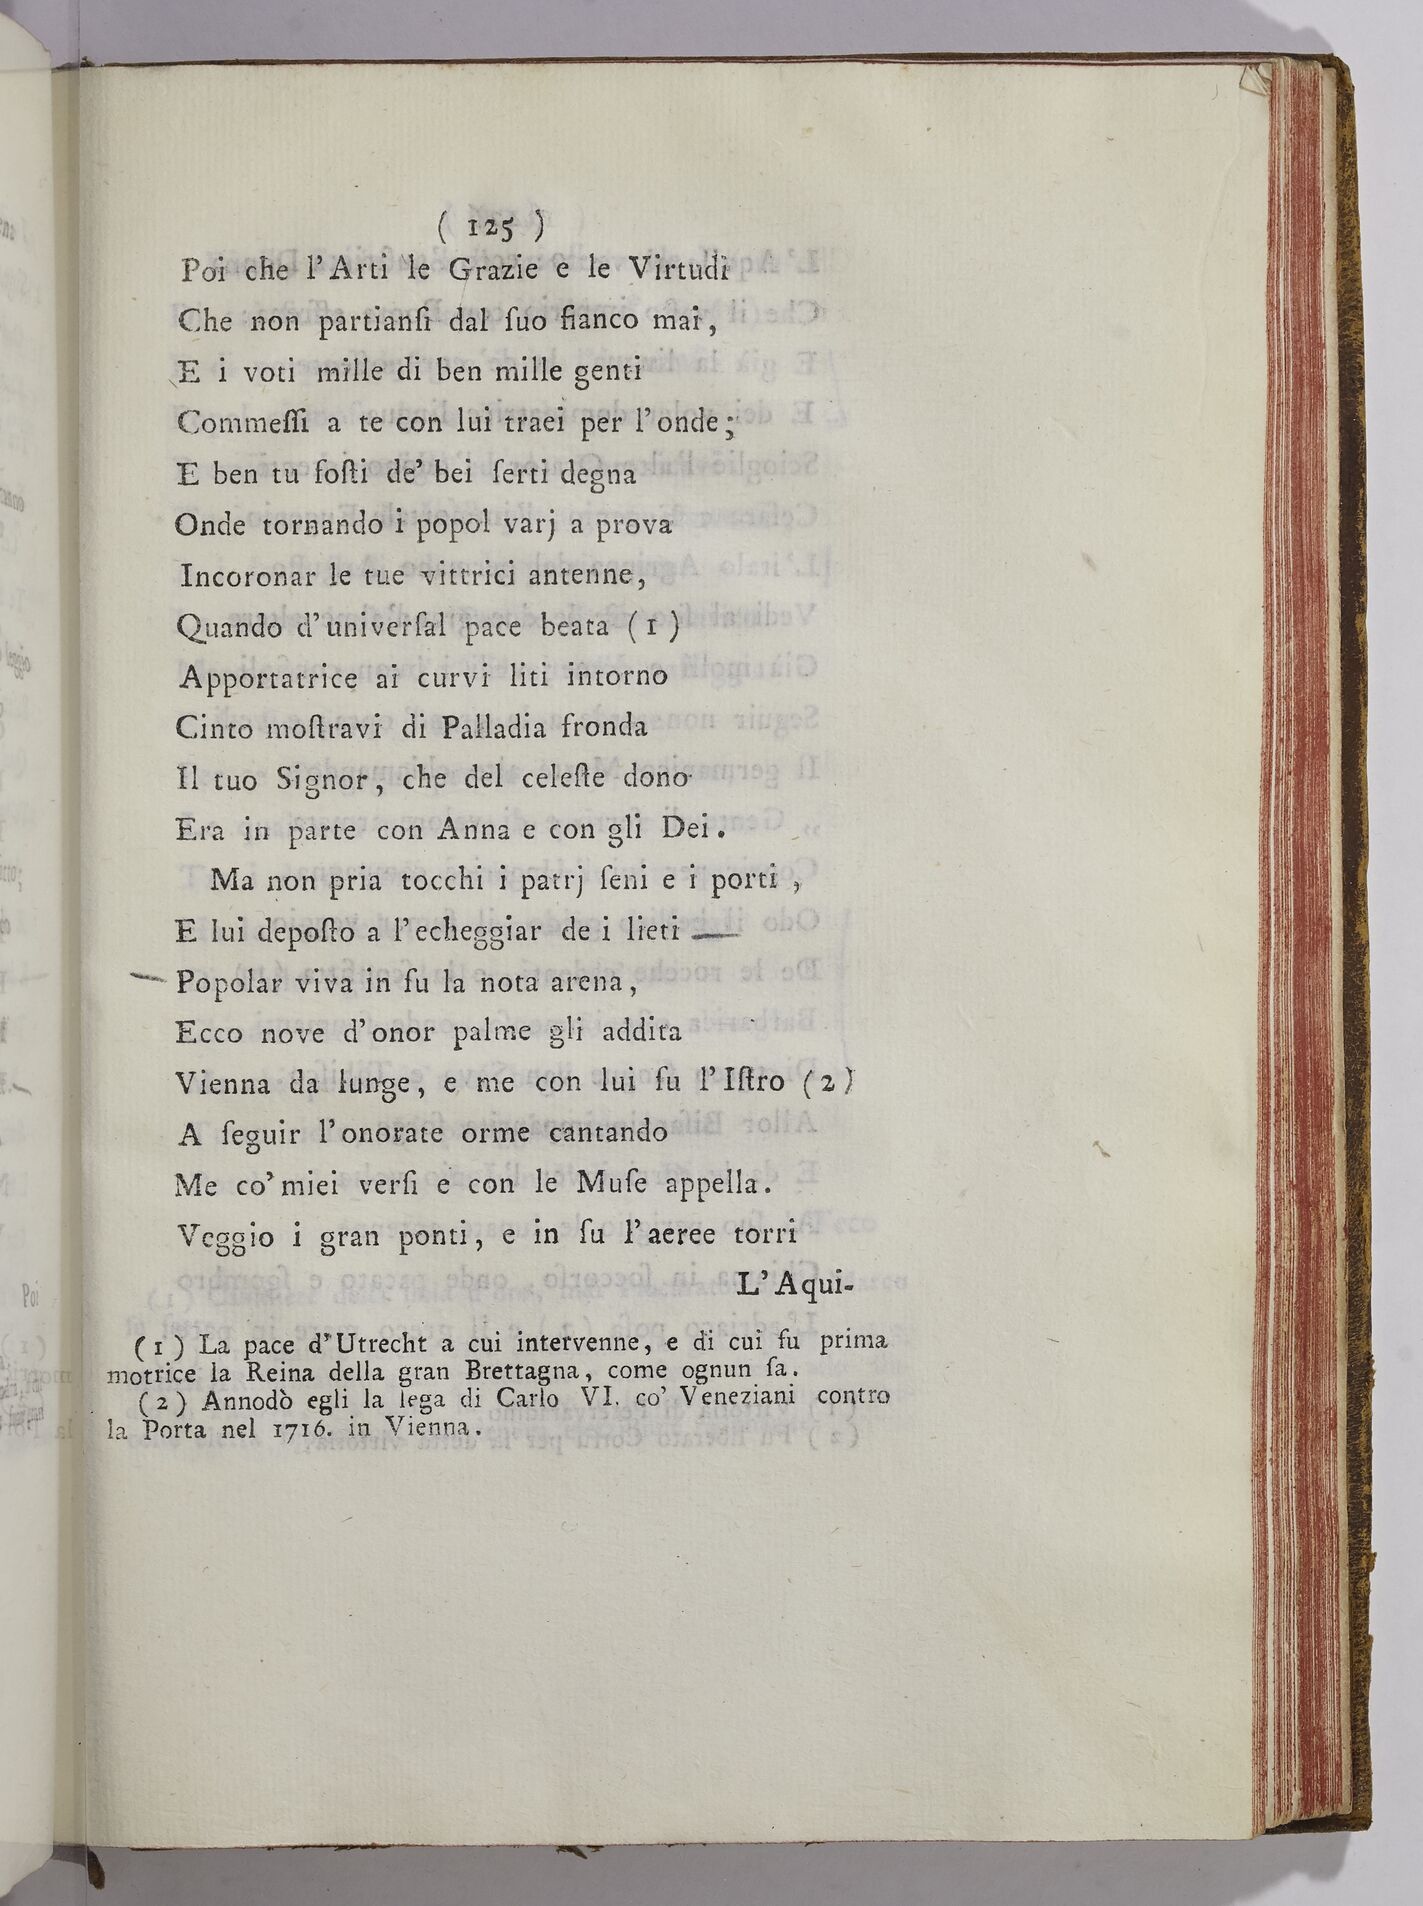 ( 125 )
Poi che l'Arti le Grazie e le Virtudi
Che non partianſi dal ſuo fianco mai,
E i voti mille di ben mille genti
Commeſſi a te con lui traei per l'onde;
E ben tu foſti de' bei ſerti degna
Onde tornando i popol varj a prova
Incoronar le tue vittrici antenne,
Quando d'univerſal pace beata (1)
Apportatrice ai curvi liti intorno
Cinto moſtravi di Palladia fronda
Il tuo Signor, che del celeſte dono
Era in parte con Anna e con gli Dei.
Ma non pria tocchi i patrj ſeni e i porti,
E lui depoſto a l'echeggiar de i lieti
Popolar viva in ſu la nota arena,
Ecco nove d'onor palme gli addita
Vienna da lunge, e me con lui ſu l'Iſtro (2)
A ſeguir l'onorate orme cantando
Me co' miei verſi e con le Muſe appella.
Veggio i gran ponti, e in ſu l'aeree torri
L'Aqui-
(1) La pace d'Utrecht a cui intervenne, e di cui fu prima
motrice la Reina della gran Brettagna, come ognun ſa.
(2) Annodò egli la lega di Carlo VI. co' Veneziani contro
la Porta nel 1716. in Vienna.